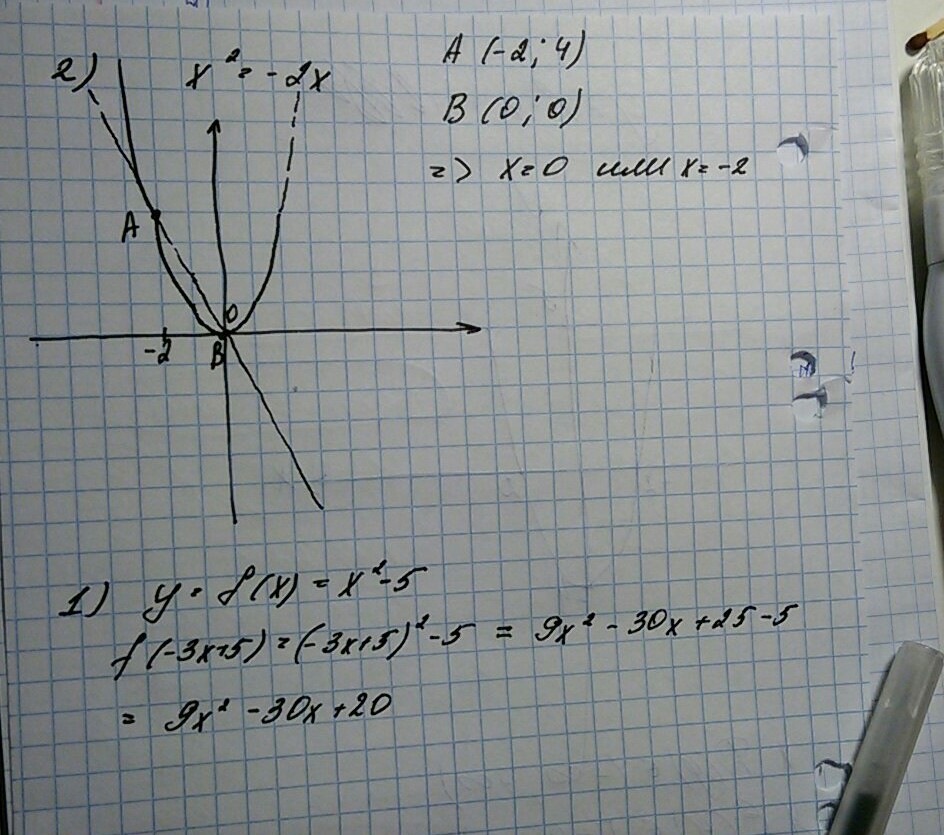 2) x² = -2x
A (-2; 4)
B (0; 0)
=> x=0 или x=-2
A
0
-2
B
1) y = f(x) = x²-5
f(-3x+5) = (-3x+5)²-5 = 9x² - 30x + 25 - 5
= 9x² - 30x + 20